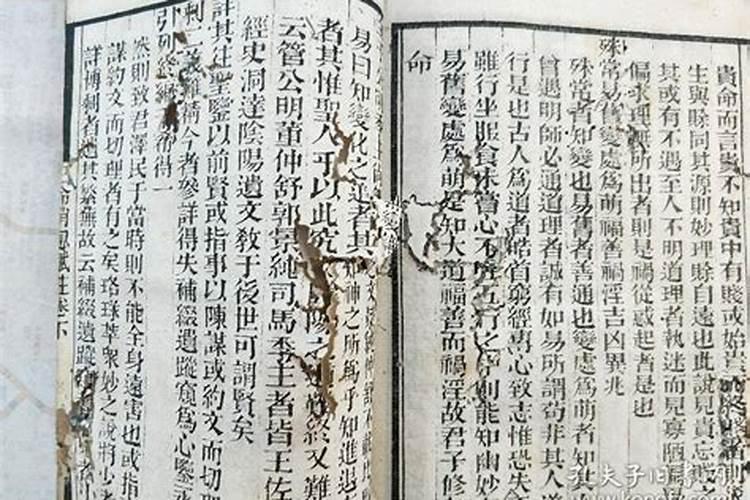 貴命而言貴不知貴中有賤或始貴
生與賒同其源則妙理賒自遠也此說見貴忘
其或有不遇至人不明道理者執迷而見寡陋
偏求理無所出者則是禍從惑起者是也
殊常易舊變處為萌福善禍淫吉凶異兆
殊常者知變也易舊者善通也變處為萌者知其
曾遇明師必通道理者誠有如易所謂苟非其人道
行是也古人為道者皓首窮經專心致志惟恐失
雖行坐服食未嘗心不 五行之 則能知幽妙
易舊變處為萌是知大道福善而禍淫故君子修
命
易曰知變化之道者其知神之所為乎知進退
者其惟聖人乎以此究 陽之 又難
云管公明董仲舒郭景純司馬季主者皆王佐
經史洞達陰陽遺文教于後世可謂賢矣
註其注聖鑒以前賢或指事以陳謀或約文而切理
刺 今者參詳得失補綴遺蹤窺為心鑒
引列終
然則致君澤民于當時則不能全身遠害也或
謀約文而切理者有之矣珞琭萃眾妙之說將少
詳博剌者也其繁蕪故云補綴遺蹤
賦註卷下
孔夫子旧书网